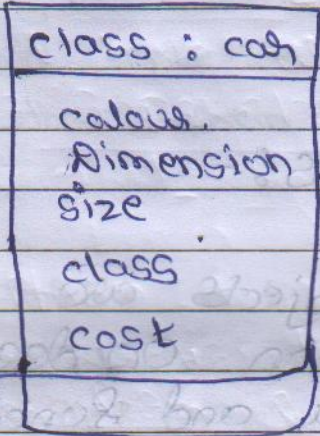 class : car
colour.
Dimension
size
class
cost